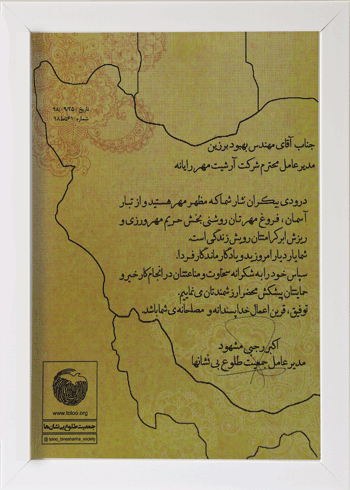 تاریخ: ۹۸/۰۹/۲۵
جناب آقای مهندس بهبود برزین
مدیرعامل محترم شرکت آرشیت مهر رایانه
درودی بیکران نثار شما که مظهر مهر هستید و از تبار
آسمان، فروغ مهرتان روشنی بخش حریم مهرورزی و
ریزش ابر کرامتتان رویش زندگی است.
شما یار دیار امروزید و یادگار ماندگار فردا.
سپاس خود را به شکرانه سخاوت و مناعتتان در انجام کار خیر و
حمایتتان پیشکش محضر ارزشمندتان می‌نماییم.
توفیق، قرین اعمال خداپسندانه و مصلحانه‌ی شما باشد.
اکبر رجبی مشهود
مدیرعامل جمعیت طلوع بی نشانها
www.toloo.org
جمعیت طلوع بی نشان‌ها